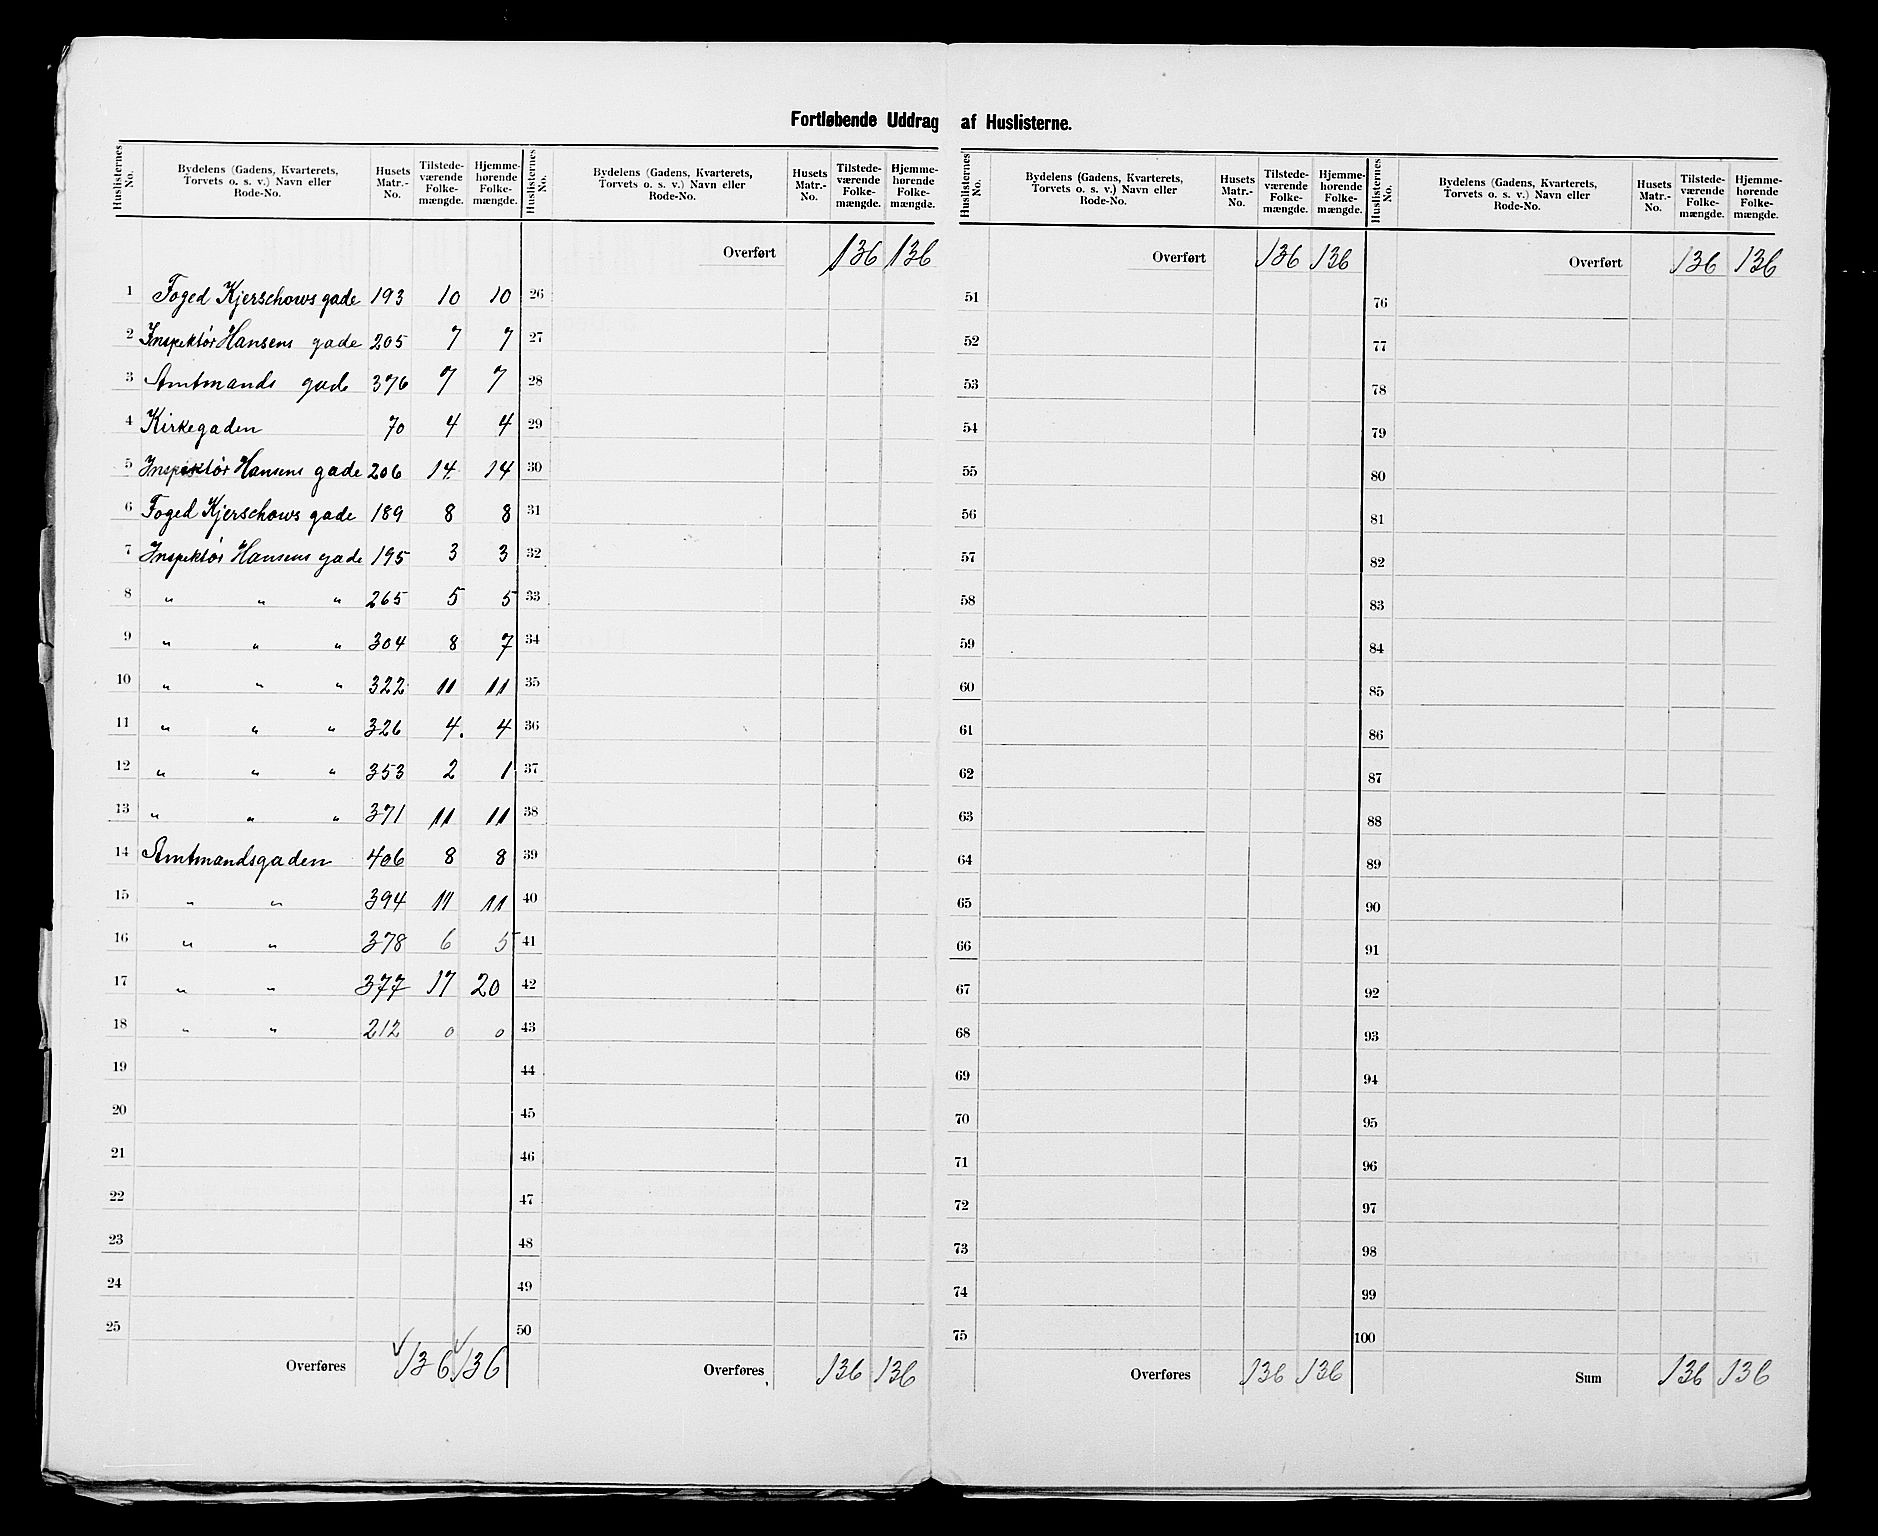 Fortløbende Uddrag af Huslisterne.
Huslisternes No. Bydelens (Gadens, Kvarterets, Torvets o. s. v.) Navn eller Rode-No. Husets Matr.-No. Tilstedeværende Folkemængde. Hjemmehørende Folkemængde.
1 Foged Kjerschows gade 193 10 10
2 Inspektør Hansens gade 205 7 7
3 Amtmands gade 376 7 7
4 Kirkegaden 70 4 4
5 Inspektør Hansens gade 206 14 14
6 Foged Kjerschows gade 189 8 8
7 Inspektør Hansens gade 195 3 3
8 " " " 265 5 5
9 " " " 304 8 7
10 " " " 322 11 11
11 " " " 326 4. 4
12 " " " 353 2 1
13 " " " 371 11 11
14 Amtmandsgaden 406 8 8
15 " " 394 11 11
16 " " 378 6 5
17 " " 377 17 20
18 " " 212 0 0
19
20
21
22
23
24
25
Overføres 136 136
Huslisternes No. Bydelens (Gadens, Kvarterets, Torvets o. s. v.) Navn eller Rode-No. Husets Matr.-No. Tilstedeværende Folkemængde. Hjemmehørende Folkemængde.
Overført 136 136
26
27
28
29
30
31
32
33
34
35
36
37
38
39
40
41
42
43
44
45
46
47
48
49
50
Overføres 136 136
Huslisternes No. Bydelens (Gadens, Kvarterets, Torvets o. s. v.) Navn eller Rode-No. Husets Matr.-No. Tilstedeværende Folkemængde. Hjemmehørende Folkemængde.
Overført 136 136
51
52
53
54
55
56
57
58
59
60
61
62
63
64
65
66
67
68
69
70
71
72
73
74
75
Overføres 136 136
Huslisternes No. Bydelens (Gadens, Kvarterets, Torvets o. s. v.) Navn eller Rode-No. Husets Matr.-No. Tilstedeværende Folkemængde. Hjemmehørende Folkemængde.
Overført 136 136
76
77
78
79
80
81
82
83
84
85
86
87
88
89
90
91
92
93
94
95
96
97
98
99
100
Sum 136 136